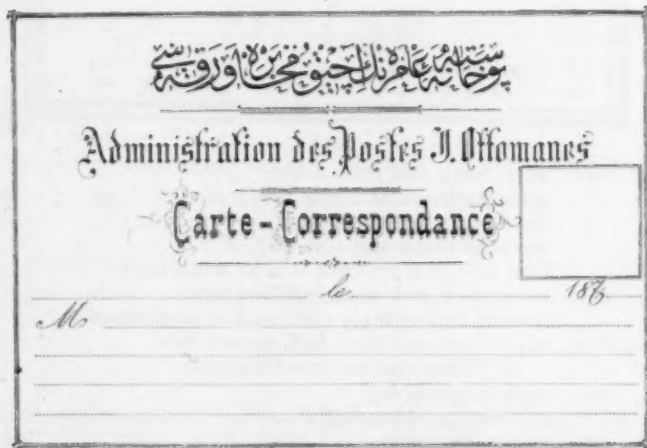 پوسته‌خانهٔ عامره‌نك آچیق مخابره ورقه‌سی
Administration des Postes J. Ottomanes
Carte-Correspondance
le 187
M